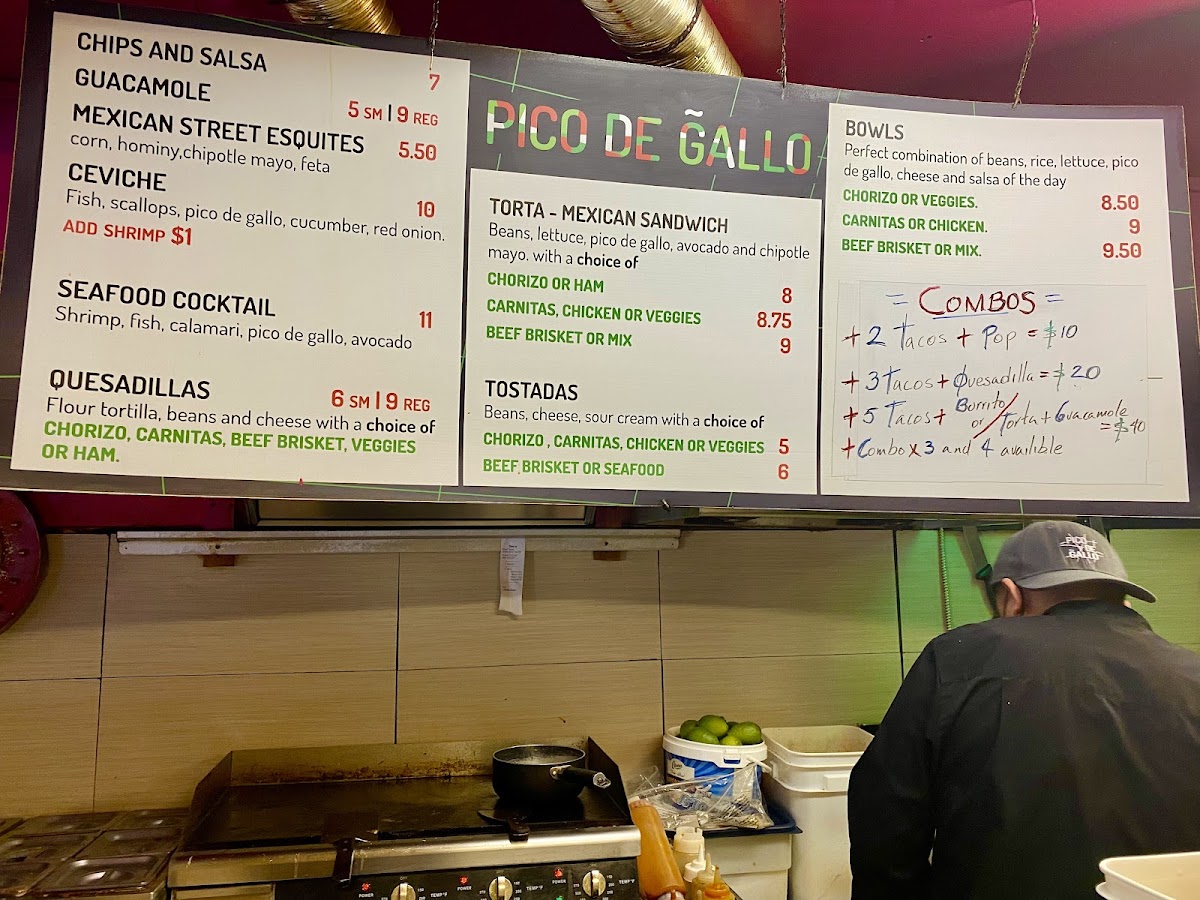 CHIPS AND SALSA 7
GUACAMOLE 5 SM | 9 REG
MEXICAN STREET ESQUITES 5.50
corn, hominy,chipotle mayo, feta
CEVICHE 10
Fish, scallops, pico de gallo, cucumber, red onion.
ADD SHRIMP $1
SEAFOOD COCKTAIL 11
Shrimp, fish, calamari, pico de gallo, avocado
QUESADILLAS 6 SM | 9 REG
Flour tortilla, beans and cheese with a choice of
CHORIZO, CARNITAS, BEEF BRISKET, VEGGIES
OR HAM.
PICO DE G̃ALLO
TORTA - MEXICAN SANDWICH
Beans, lettuce, pico de gallo, avocado and chipotle
mayo. with a choice of
CHORIZO OR HAM 8
CARNITAS, CHICKEN OR VEGGIES 8.75
BEEF BRISKET OR MIX 9
TOSTADAS
Beans, cheese, sour cream with a choice of
CHORIZO , CARNITAS, CHICKEN OR VEGGIES 5
BEEF, BRISKET OR SEAFOOD 6
BOWLS
Perfect combination of beans, rice, lettuce, pico
de gallo, cheese and salsa of the day
CHORIZO OR VEGGIES. 8.50
CARNITAS OR CHICKEN. 9
BEEF BRISKET OR MIX. 9.50
= COMBOS =
+ 2 Tacos + Pop = $10
+ 3 Tacos + Quesadilla = $20
+ 5 Tacos + Burrito or / Torta + Guacamole = $40
+ Combo x 3 and 4 availible
PICO
DE
GALLO
POWER TEMP °F POWER TEMP °F POWER TEMP °F